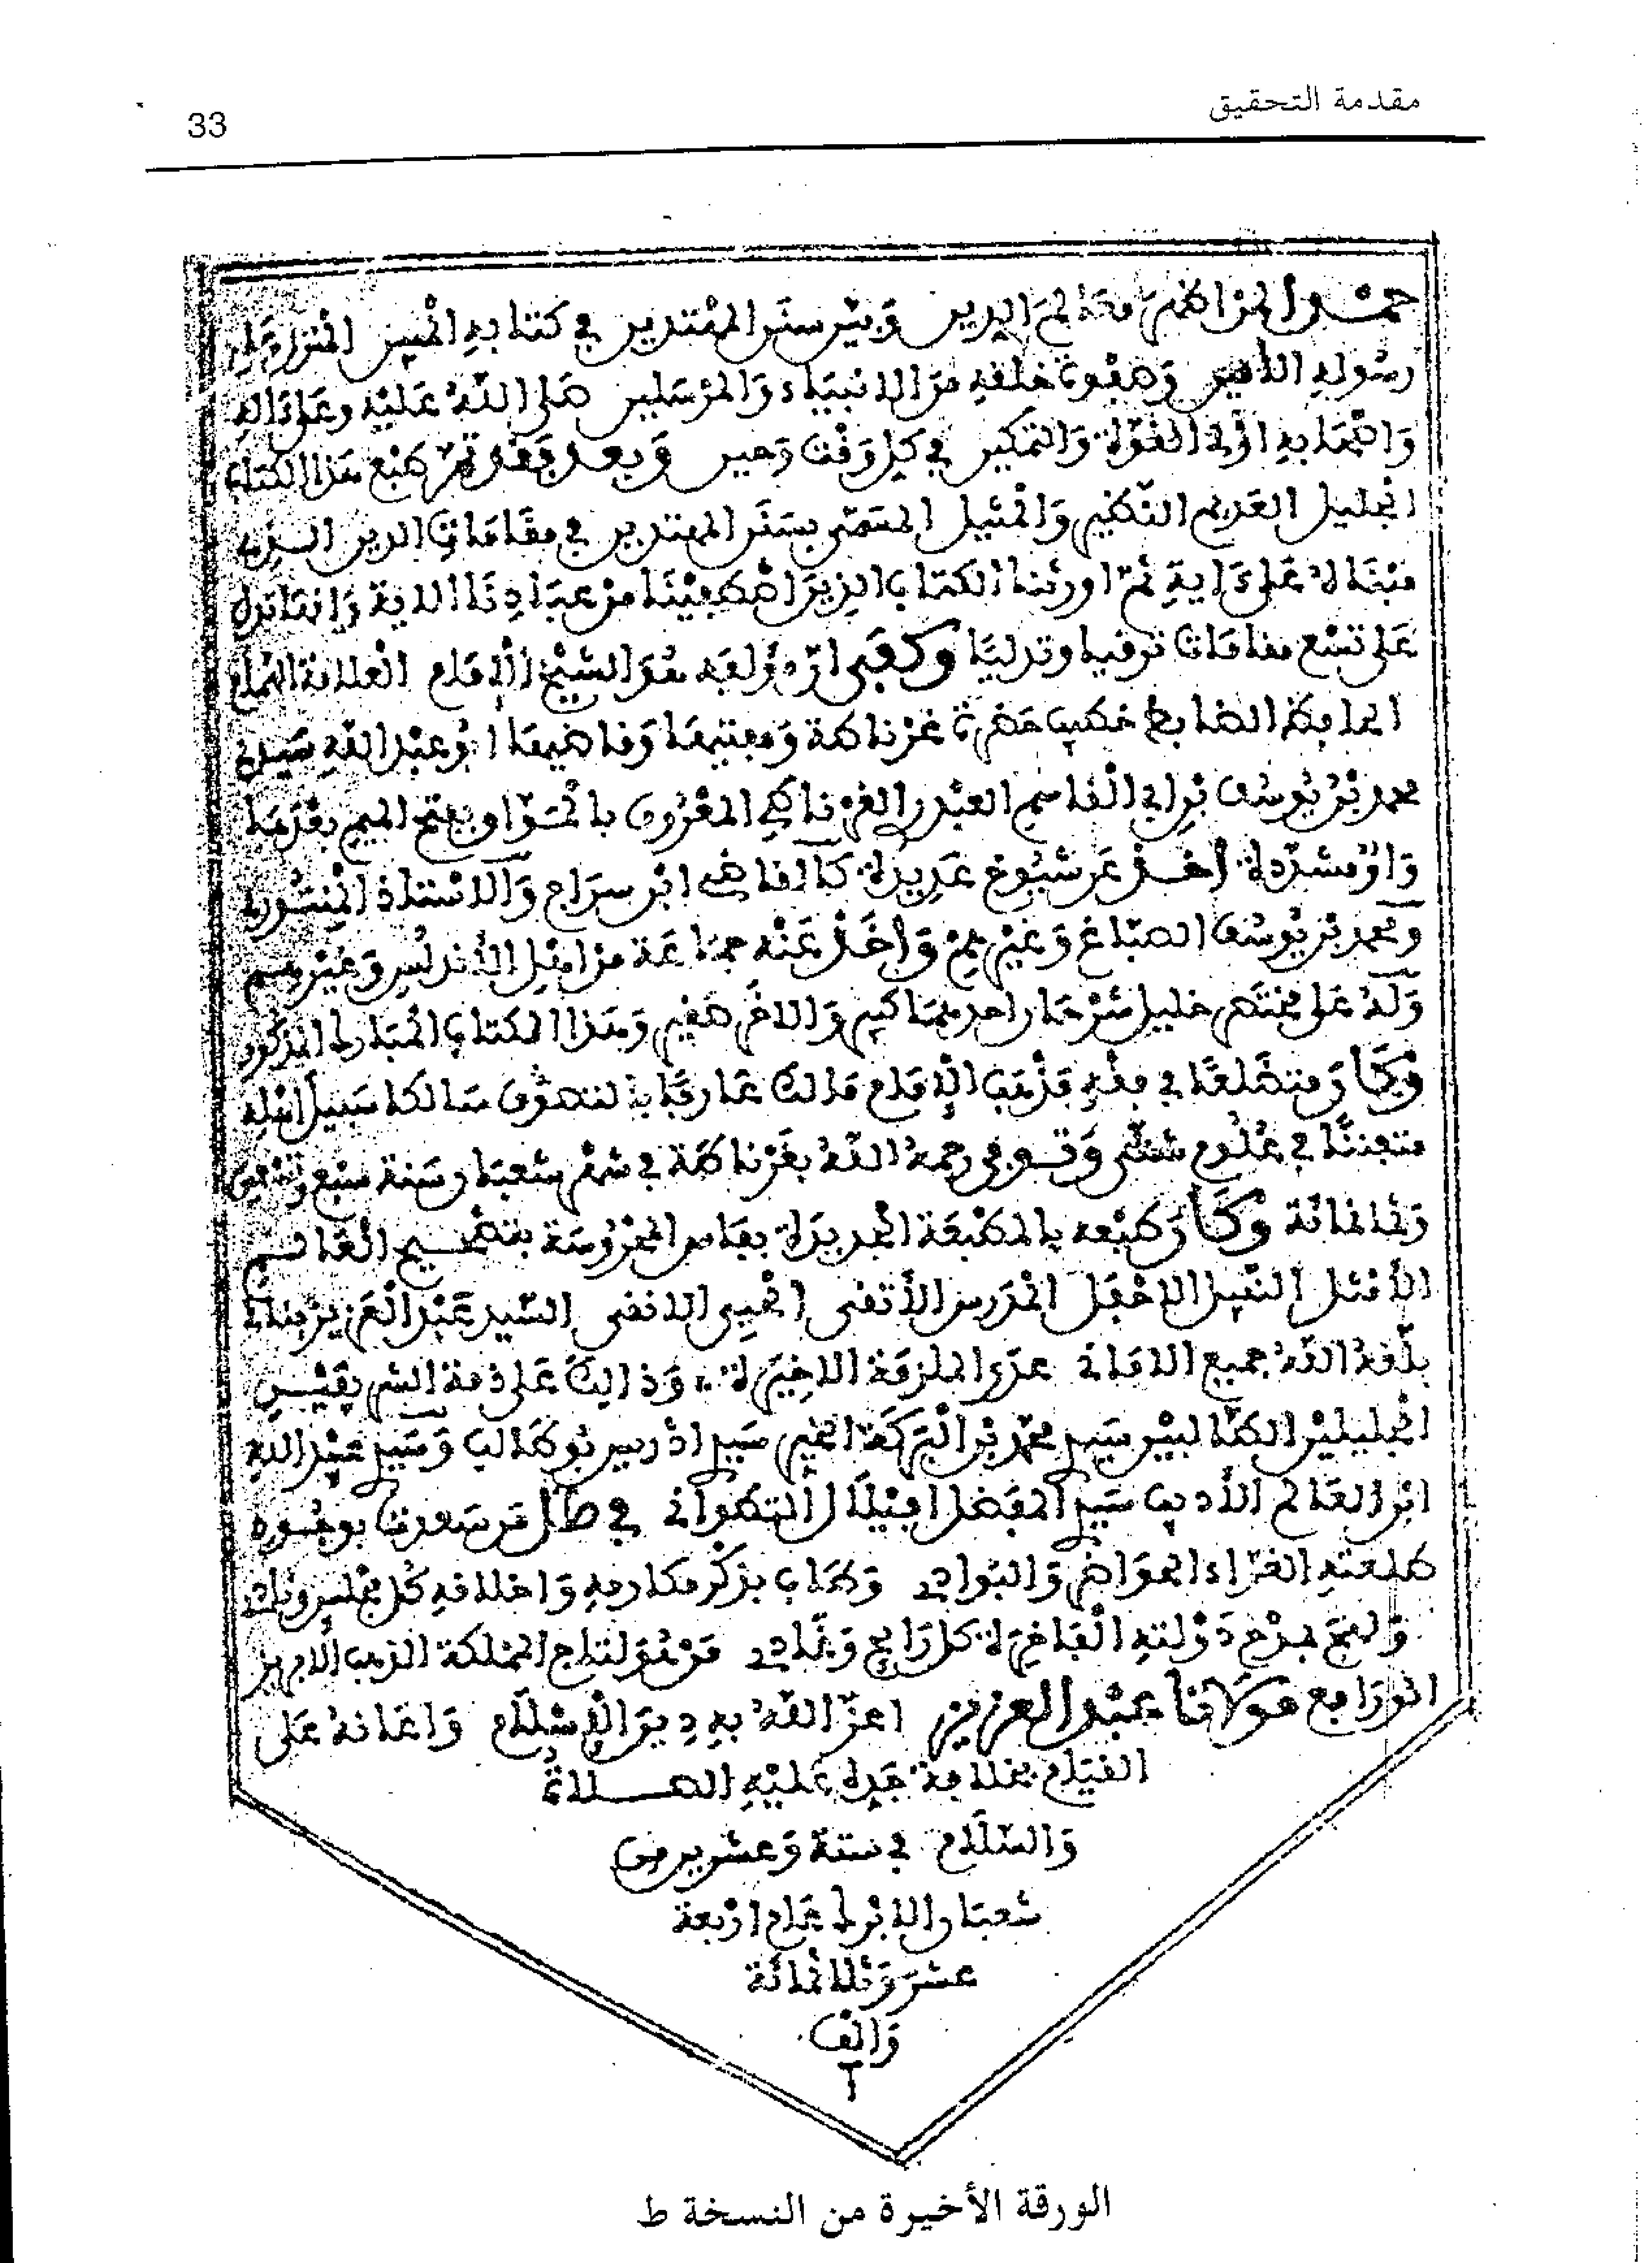 مقدمة التحقيق
33
حمدا لمن اظهر معالم الدين وبين سنن المهتدين في كتابه المبين المنزل على
رسوله الأمين وصفوة خلقه من الانبياء والمرسلين صلى الله عليه وعلى ءاله
واصحابه اولى القوة والتمكين في كل وقت وحين وبعد فقد تم طبع هذا الكتاب
الجليل العديم النظير والمثيل المسمى بسنن المهتدين في مقامات الدين الذي
مبناه على ءاية ثم اورثنا الكتاب الذين اصطفينا من عبادنا الاية وانها تدل
على تسع مقامات ترقيا وتدليا وكفى ان مؤلفه هو الشيخ الإمام العلامة الهمام
الحافظ الضابط خطيب حضرة غرناطة ومفتيها وقاضيها ابو عبد الله سيدي
محمد بن يوسف بن ابي القاسم العبدري الغرناطي المعروف بالمواق بفتح الميم بعدها
واو مشددة أخذ عن شيوخ عديدة كالقاضي ابن سراج والاستاذ المنتوري
ومحمد بن يوسف الصناع وغيرهم واخذ عنه جماعة من اهل الأندلس وغيرهم
وله على مختصر خليل شرحان احدهما كبير والاخر صغير وهذا الكتاب المبارك المذكور
وكان متضلعا في فقه مذهب الإمام مالك عارفا بالتصوف سالكا سبيل اهله
متفننا في علوم شتى وتوفي رحمه الله بغرناطة في شهر شعبان سنة سبع وتسعين
وثمانمائة وكان طبعه بالمطبعة الجديدة بفاس المحروسة بتصحيح العالم
الأمثل النبيل الاحفل المدرس الأتقى الخير الانقى السيد عبد العزيز بناني
بلغه الله جميع الاماني عدى الملزمة الاخيرة، وذالك على ذمة الشريفين
الجليلين الطالبين سيدي محمد بن البركة الخير سيدي ادريس بوطالب وسيدي عبد الله
ابن العالم الأديب سيدي المفضل افيلال التطواني في ظل من سعدت بوجوده
طلعته الغراء الحواضر والبوادي وطاب بذكر مكارمه واخلاقه كل مجلس ونادي
ولهج بمدح دولته الفاخرة كل رايح وغادي من هو لتاج المملكة الذهب الابريز
الورافع مولانا عبد العزيز اعز الله به دين الإسلام واعانه على
القيام بخلافة جده عليه الصلاة
والسلام في ستة وعشرين من
شعبان الابرك عام اربعة
عشر وثلاثمائة
والف
الورقة الأخيرة من النسخة ط